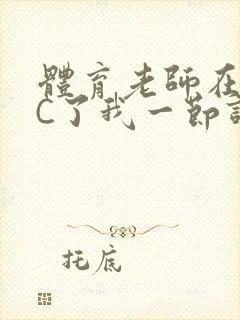 體育老師在
C了我一節
托底